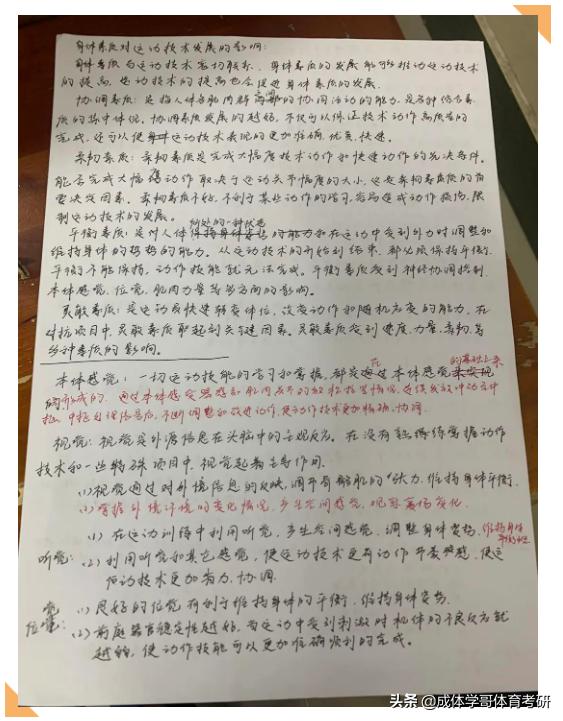 身体素质对运动技术发展的影响:
身体素质与运动技术密切联系。身体素质的发展能够推动运动技术
的提高,运动技术的提高也会促进身体素质的发展。
协调素质:是指人体各肌肉群之间的协调活动的能力,是各种综合素
质的集中体现,协调素质发展的越好,不仅可以保证技术动作高质量的
完成,还可以使运动技术表现的更加准确、优美、快速。
柔韧素质:柔韧素质是完成大幅度技术动作和快速动作的先决条件。
能否完成大幅度动作取决于运动关节幅度的大小,这是柔韧素质的首
要决定因素。柔韧素质不好,不利于某些动作的学习,容易造成动作损伤,限
制运动技术的发展。
平衡素质:是对人体所处的一种状态的能力和在运动中受到外力时调整和
维持身体的姿势的能力。从运动技术的开始到结束,都必须保持平衡,
平衡不能保持,动作技能就无法完成。平衡素质受到神经协调控制、
本体感觉、位觉、肌肉力量等多方面的影响。
灵敏素质:是运动员快速转变体位、改变动作和随机应变的能力,在
对抗项目中,灵敏素质取起到关键因素。灵敏素质受到速度、力量、柔韧、等
多种素质的影响。
本体感觉:一切运动技能的学习和掌握,都是在本体感觉的基础上来
形成的。通过本体感受器感知肌肉
中枢处理信息后,不断调整和改进动作,使动作技术更加精确、协调
视觉:视觉是外源信息在头脑中的主观反应。在没有熟练掌握动作
技术和一些特殊项目中,视觉起着主导作用。
(1)视觉通过对外境信息的反映,调节骨骼肌的张力,维持身体平衡。
(2)掌握外境环境的变化情况,产生空间感觉,观察客体变化
(1)在运动训练中利用听觉,产生空间感觉,调整身体姿势,维持身体
平衡
听觉:(2)利用听觉和其它感觉,使运动技术更有动作节奏感,使运
动技术更加省力、协调。
位觉:(1)良好的位觉有利于维持身体的平衡,维持身体姿势。
(2)前庭器官稳定性越好,当运动中受到刺激时机体的不良反应就
越弱,使动作技能可以更加准确顺利的完成。
头条 @成体学哥体育考研